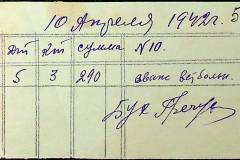 10 Апреля 1942 г. 5
Дт Кт сумма №10.
5 3 290 аванс
Бух